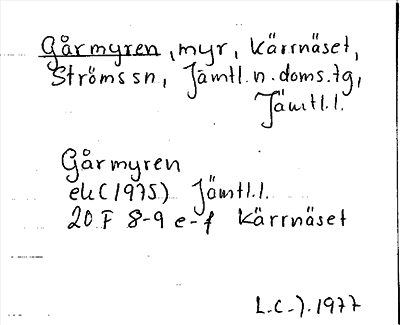 Gårmyren, myr, Kärrnäset,
Ströms sn, Jämtl. n. doms. tg,
Jämtl. l.
Gårmyren
ek (1975) Jämtl. l.
20 F 8-9 e-f Kärrnäset
L.C-).1977